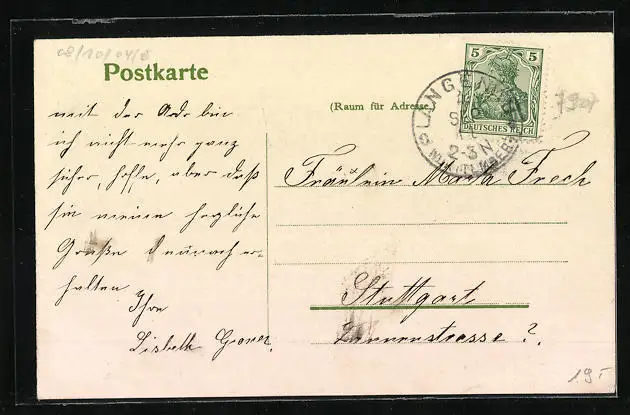 08/10/04/8
Postkarte
(Raum für Adresse.)
5 5
DEUTSCHES REICH
LANGEN
2-3 N
WÜRTTEMBERG
mit der Adr. bin
ich nicht mehr ganz
sicher, hoffe, aber daß
sie meinen herzliche
Grüße dennoch er-
halten
Ihre
Lisbeth
Fräulein Maria Frech
Stuttgart
strasse ?.
19.-